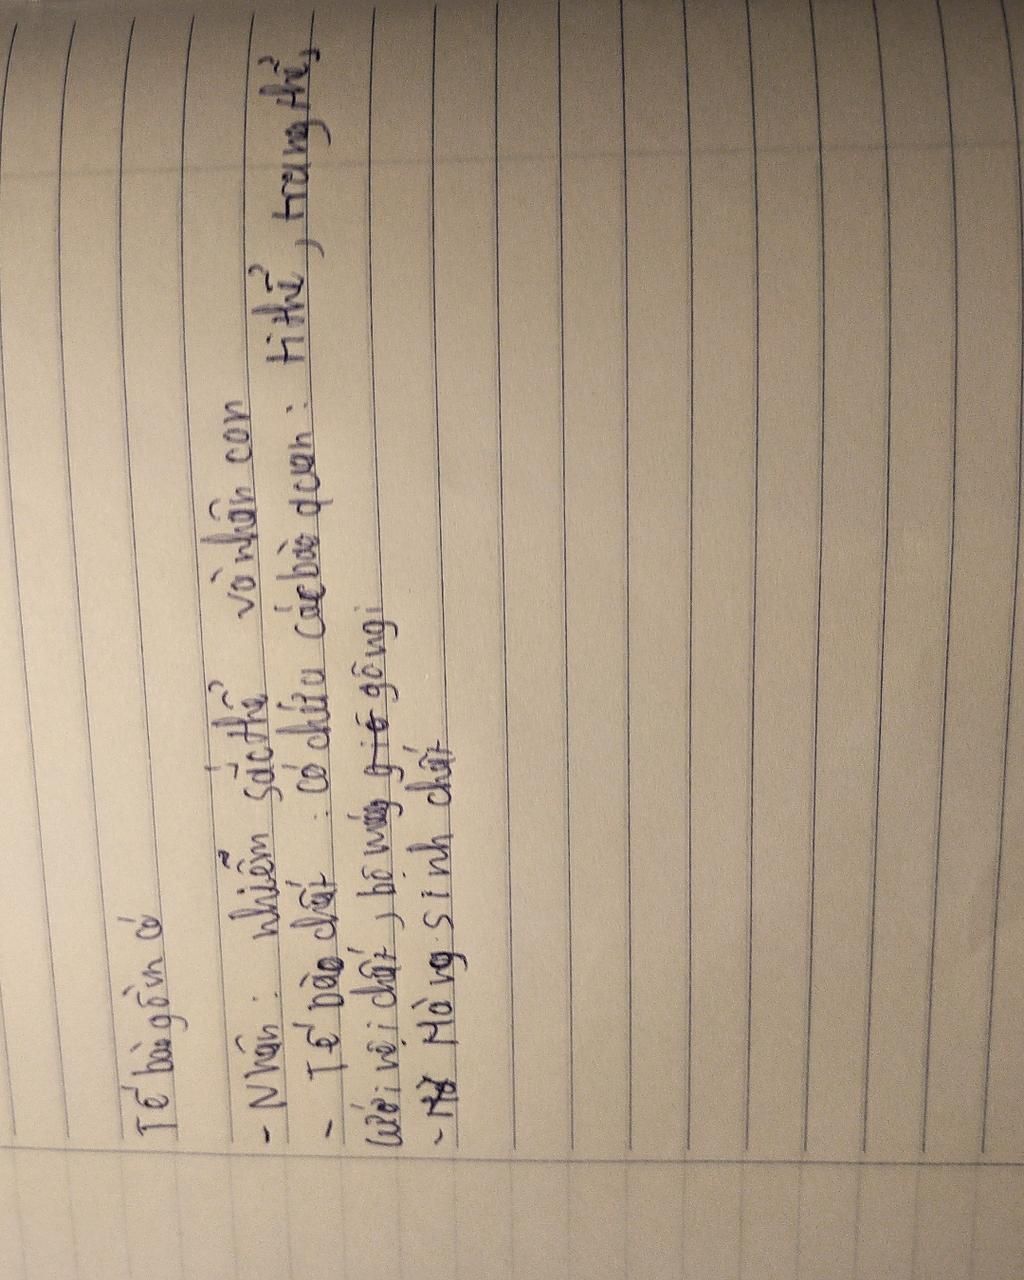 Tế bào gồm có
- Nhân: nhiễm sắc thể và nhân con
- Tế bào chất : có chứa các bào quan : ti thể, trung thể,
lưới nội chất, bộ máy gôngi
- Màng sinh chất